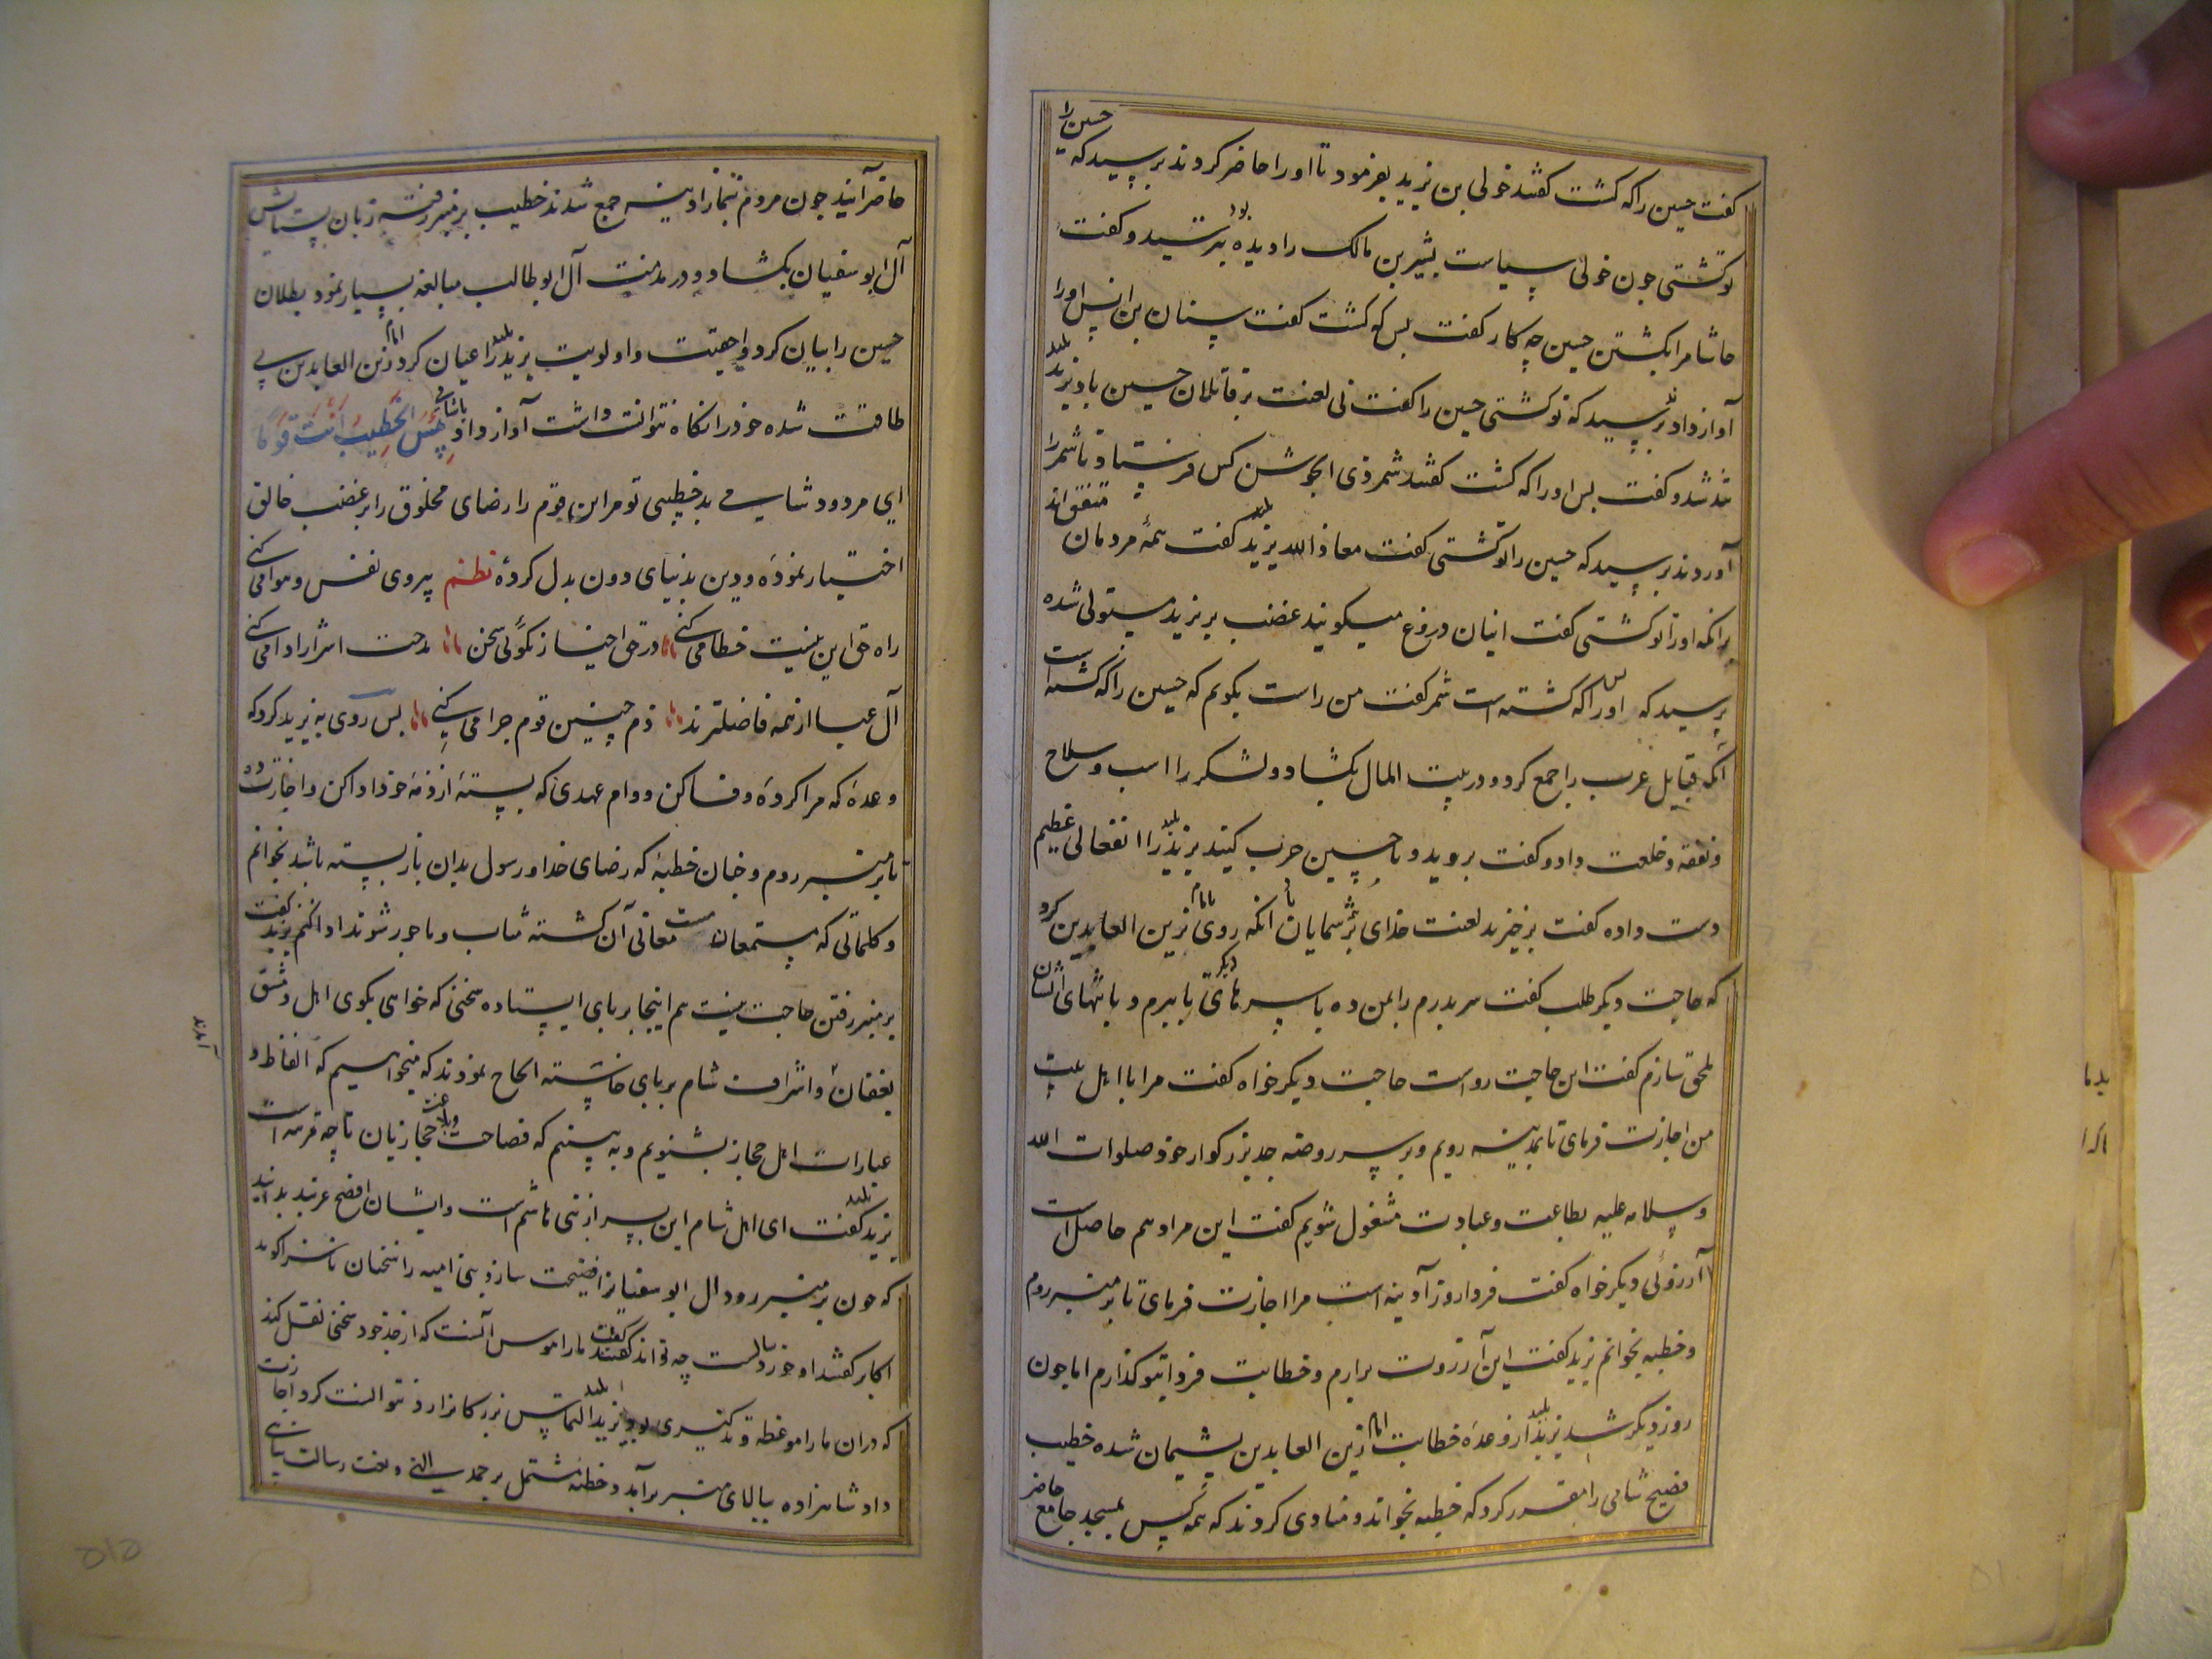 گفت حسین را که کشت گفتند خولی بن یزید بفرمود تا اورا حاضر کردند پرسید که حسین را
تو کشتی چون خولی سیاست بشیر بن مالک را دیده بود بترسید و گفت
حاشا مرا بکشتن حسین چه کار گفت پس که کشت گفت سنان بن انس اورا
آواز داد و پرسید که تو کشتی حسین را گفت نی لعنت بر قاتلان حسین باد یزید پلید
تند شد و گفت پس اورا که کشت گفتند شمر ذی الجوشن کس فرستاد تا شمر را
آوردند پرسید که حسین را تو کشتی گفت معاذ الله یزید پلید گفت همهٔ مردمان متفق اند
برانکه اورا تو کشتی گفت اینان دروغ میگویند غضب بر یزید مستولی شده
پرسید که پس اورا که کشته است شمر گفت من راست بگویم که حسین را که کشته است
آنکه قبایل عرب را جمع کرد و در بیت المال بکشاد و لشکر را اسب و سلاح
و نفقه و خلعت داد و گفت بروید و با حسین حرب کنید یزید پلید را انفعالی عظیم
دست داده گفت برخیزید لعنت خدای بر شما باد آنکه روی بامام زین العابدین کرد
که حاجت دیگر طلب گفت سر پدرم را بمن ده با سرهای دیگر تا ببرم و با تنهای ایشان
ملحق سازم گفت این حاجت رواست حاجت دیگر خواه گفت مرا با اهل بیت
من اجازت فرمای تا بمدینه رویم و بر سر روضه جد بزرگوار خود صلوات الله
وسلامه علیه بطاعت و عبادت مشغول شویم گفت این مراد هم حاصل است
آرزوئی دیگر خواه گفت فردا روز آدینه است مرا اجازت فرمای تا بر منبر روم
و خطبه بخوانم یزید گفت این آرزوت برارم و خطابت فردا بتو گذارم اما چون
روز دیگر شد یزید پلید از وعدهٔ خطابت امام زین العابدین پشیمان شده خطیب
فصیح شامی را مقرر کرد که خطبه بخواند و منادی کردند که همه کس بمسجد جامع حاضر
حاضر آیند چون مردم بنماز آدینه جمع شدند خطیب بر منبر رفته زبان بستایش
آل ابو سفیان بکشاد و در مذمت آل ابو طالب مبالغه بسیار نمود بطلان
حسین را بیان کرد و احقیت و اولویت یزید پلید را عیان کرد امام زین العابدین بی
طاقت شده خود را نگاه نتوانست داشت آواز داد یا شامی بِئْسَ الخَطِیبُ أَنْتَ قَوْمًا
ای مردود شامی بد خطیبی تو مر این قوم را رضای مخلوق را بر غضب خالق
اختیار نموده و دین بدنیای دون بدل کردهٔ نظم پیروی نفس و هوا می کنی
راه حق این نیست خطا می کنی در حق اخیار نکوئی سخن مدحت اشرار ادا می کنی
آل عبا از همه فاضلترند ذم چنین قوم چرا می کنی پس روی به یزید کرد که
وعده که مرا کردهٔ وفا کن و وام عهدی که بستهٔ از ذمهٔ خود ادا کن و اجازت ده
تا بر منبر روم و چنان خطبهٔ که رضای خدا و رسول بدان باز بسته باشد بخوانم
و کلماتی که مستمعان معانی آن گشته مثاب و ماجور شوند ادا کنم یزید گفت
بر منبر رفتن حاجت نیست هم اینجا بر پای ایستاده سخنی که خواهی بگوی اهل دمشق
بفغان و اشراف شام بر پای خاسته الحاح نمودند که میخواهیم که الفاظ و
آمدند
عبارات اهل حجاز بشنویم و به بینیم که فصاحت و بلاغت حجازیان تا چه مرتبه است
یزید پلید گفت ای اهل شام این پسر از بنی هاشم است و ایشان افصح عربند بدانید
که چون بر منبر رود ال ابو سفیانرا فضیحت سازد بنی امیه را سخنان ناسزا گوید
اکابر گفتند او خورد سالست چه تواند گفت مارا هوس آنست که از جد خود سخنی نقل کند
که دران مارا موعظه و تذکیری بود یزید پلید التماس بزرگانرا رد نتوانست کرد اجازت
داد شاهزاده ببالای منبر برآمد و خطبه مشتمل بر حمد الهی و نعت رسالت پناهی